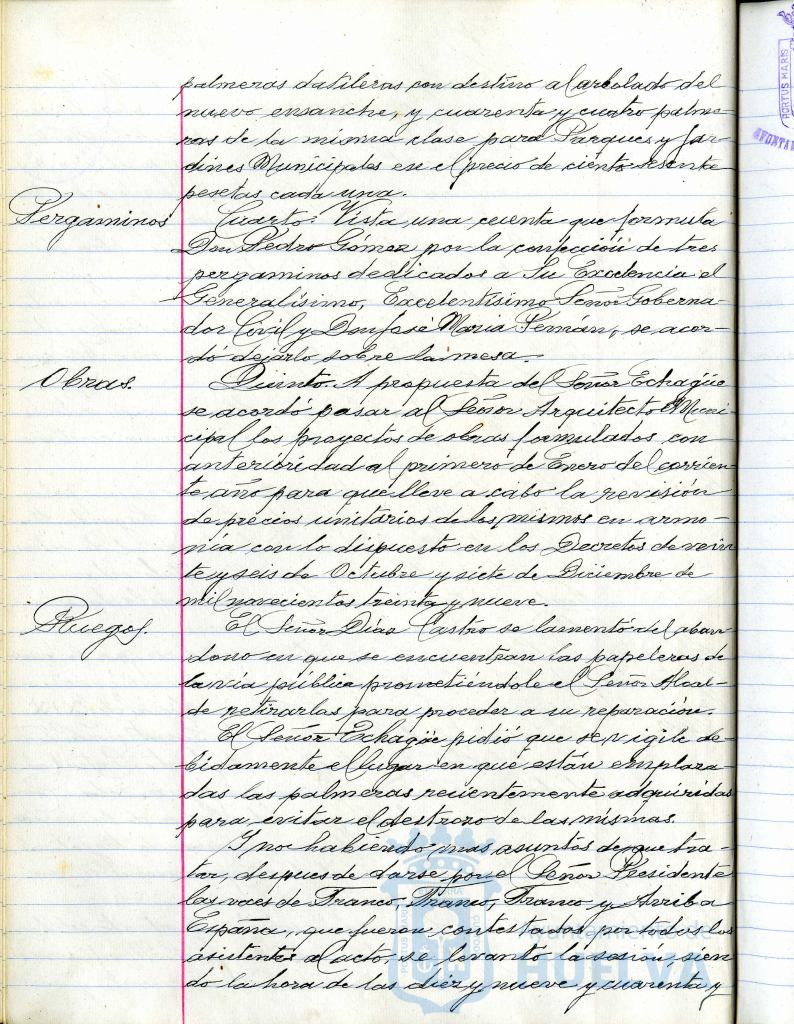 palmeras datileras con destino al arbolado del
nuevo ensanche, y cuarenta y cuatro palme-
ras de la misma clase para Parques y Jar-
dines Municipales en el precio de ciento sesenta
pesetas cada una.
Pergaminos
Cuarto. Vista una cuenta que formula
Don Pedro Gómez por la confección de tres
pergaminos dedicados a Su Excelencia el
Generalísimo, Excelentísimo Señor Goberna-
dor Civil y Don José Maria Pemán, se acor-
dó dejarlo sobre la mesa.
Obras.
Quinto. A propuesta del Señor Echagüe
se acordó pasar al Señor Arquitecto Muni-
cipal los proyectos de obras formulados con
anterioridad al primero de Enero del corrien-
te año para que lleve a cabo la revisión
de precios unitarios de los mismos en armo-
nía con lo dispuesto en los Decretos de vein-
te y seis de Octubre y siete de Diciembre de
mil novecientos treinta y nueve.
Ruegos.
El Señor Díaz Castro se lamentó del aban-
dono en que se encuentran las papeleras de
la vía pública prometiéndole el Señor Alcal-
de retirarlas para proceder a su reparación.
El Señor Echagüe pidió que se vigile de-
bidamente el lugar en que están emplaza-
das las palmeras recientemente adquiridas
para evitar el destrozo de las mismas.
Y no habiendo mas asuntos de que tra-
tar, despues de darse por el Señor Presidente
las voces de Franco, Franco, Franco y Arriba
España, que fueron contestadas por todos los
asistentes al acto, se levantó la sesión, sien-
do la hora de las diez y nueve y cuarenta y
PORTUS MARIS
Ayuntamiento de
HUELVA